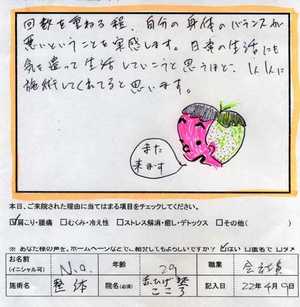 回数を重ねる程、自分の身体のバランスが
悪いということを実感します。日常の生活にも
気を遣って生活していこうと思うほど、
施術してくれてると思います。
また
来ます
本日、ご来院された理由に当てはまる項目をチェックしてください。
☑肩こり・腰痛 □むくみ・冷え性 □ストレス解消・癒し・デトックス □その他( )
※ あなた様の声を、ホームページなどで、ご紹介してもよろしいですか? ☑はい □匿名で □ダメ
お名前
(イニシャル可)
N.O.
年齢
29
職業
会社員
施術名
整体
院名(必須)
赤ひげ
記入日
22年4月9日